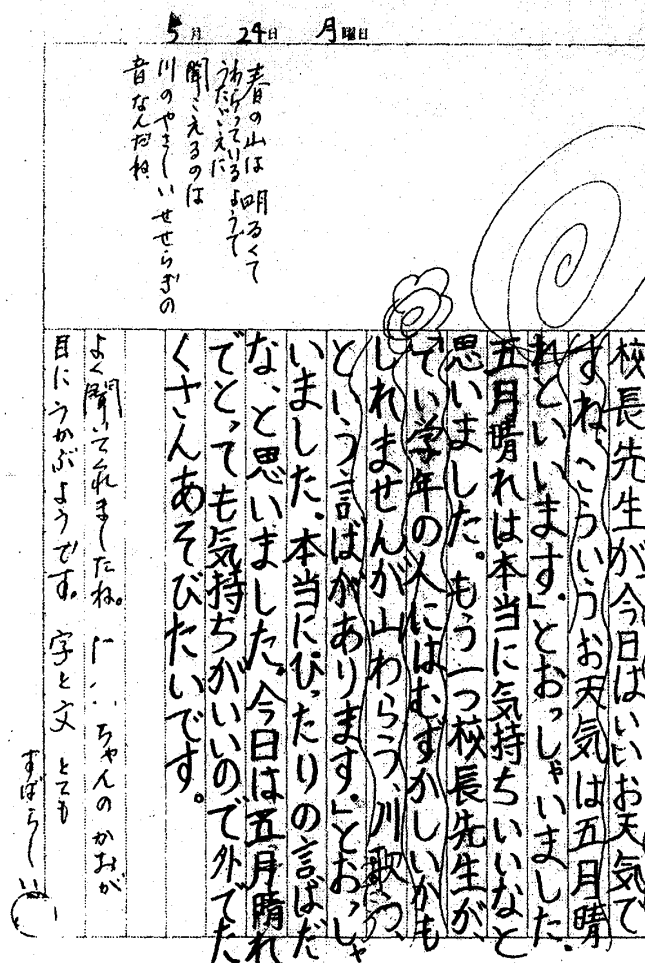 5月 24日 月曜日
春の山は明るくて
わらっているようで
うたごえに
聞こえるのは
川のやさしいせせらぎの
音なんだね
校長先生が、今日はいいお天気で
すね。こういうお天気は五月晴
れといいます。」とおっしゃいました。
五月晴れは本当に気持ちいいなと
思いました。もう一つ校長先生が、
「てい学年の人にはむずかしいかも
しれませんが山わらう、川歌う、
という言ばがあります。」とおっしゃ
いました。本当にぴったりの言ばだ
な、と思いました。今日は五月晴れ
でとっても気持ちがいいので外でた
くさんあそびたいです。
よく聞いてくれましたね。 ちゃんのかおが
目にうかぶようです。字と文 とても
すばらしい